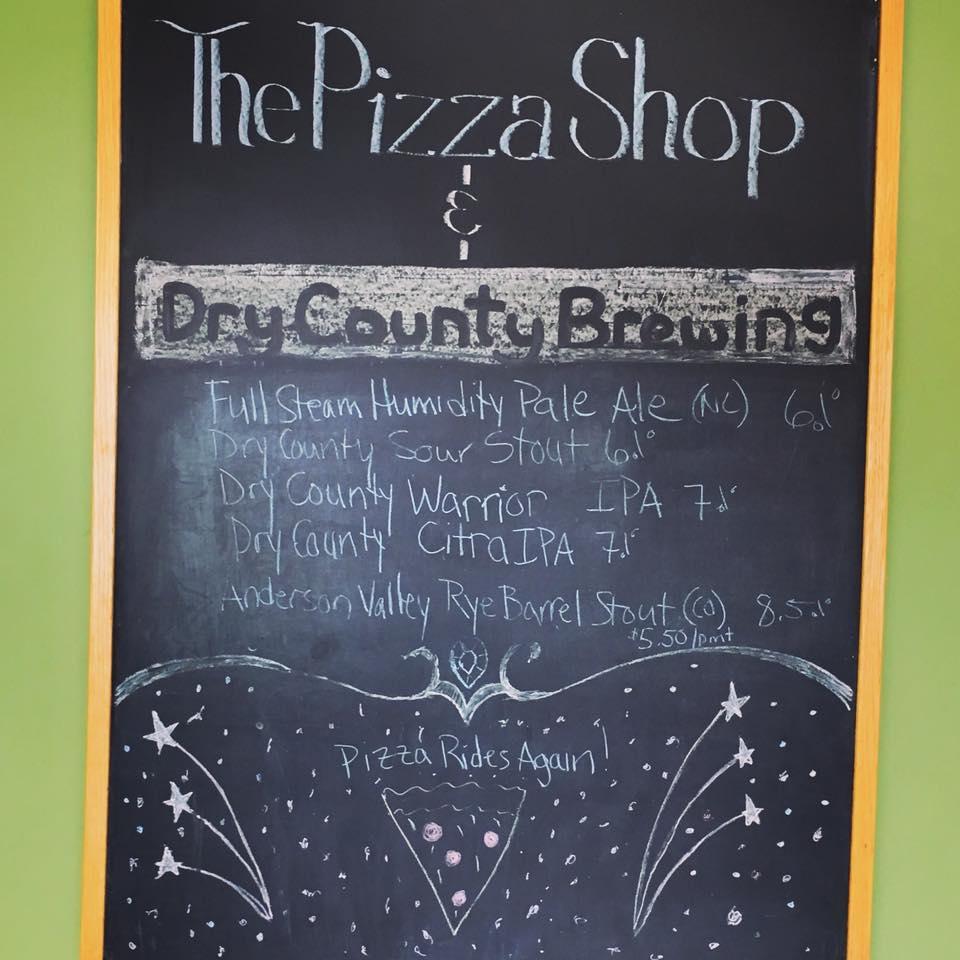 The Pizza Shop
&
Dry County Brewing
Full Steam Humidity Pale Ale (NC) 6%
Dry County Sour Stout 6%
Dry County Warrior IPA 7%
Dry County Citra IPA 7%
Anderson Valley Rye Barrel Stout (CO) 8.5%
$5.50/pint
Pizza Rides Again!